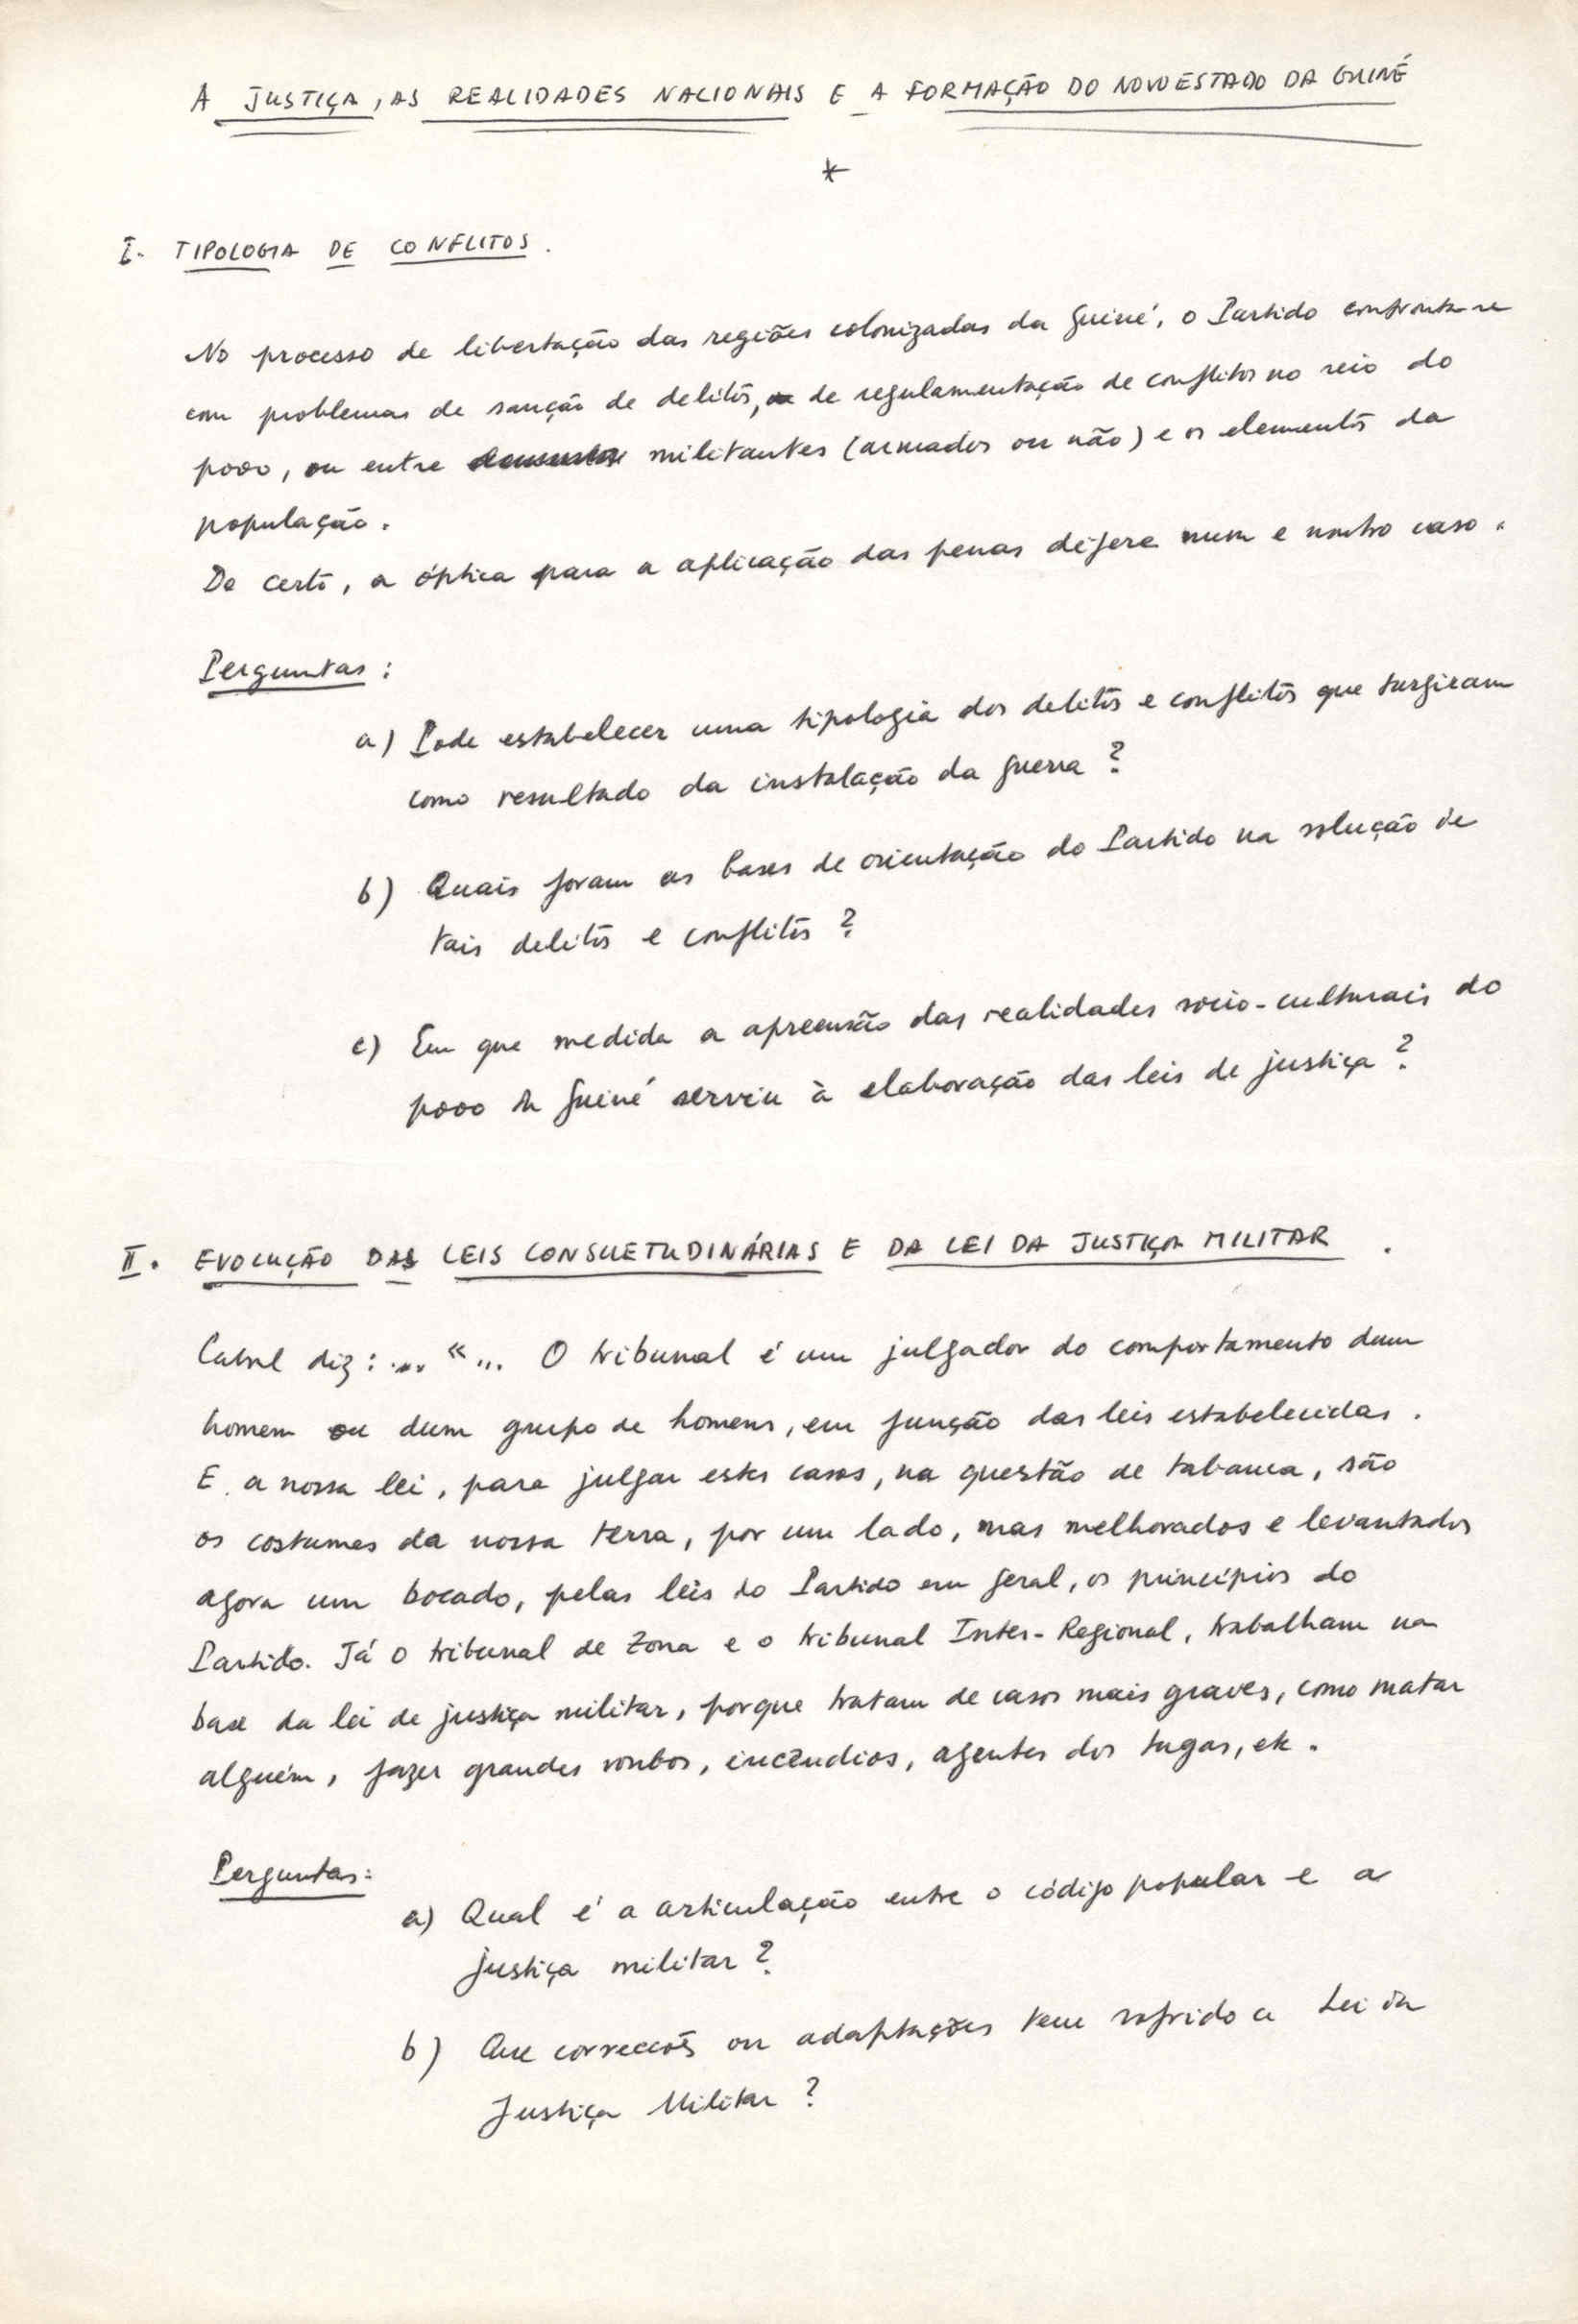 A JUSTIÇA, AS REALIDADES NACIONAIS E A FORMAÇÃO DO NOVO ESTADO DA GUINÉ
*
I. TIPOLOGIA DE CONFLITOS.
No processo de libertação das regiões colonizadas da Guiné, o Partido confronta-se
com problemas de sanção de delitos, de regulamentação de conflitos no seio do
povo, ou entre militantes (armados ou não) e os elementos da
população.
De certo, a óptica para a aplicação das penas difere num e noutro caso.
Perguntas:
a) Pode estabelecer uma tipologia dos delitos e conflitos que surgiram
como resultado da instalação da guerra?
b) Quais foram as bases de orientação do Partido na solução de
tais delitos e conflitos?
c) Em que medida a apreensão das realidades socio-culturais do
povo da Guiné serviu à elaboração das leis de justiça?
II. EVOLUÇÃO DAS LEIS CONSUETUDINÁRIAS E DA LEI DA JUSTIÇA MILITAR.
Cabral diz: ... "... O tribunal é um julgador do comportamento dum
homem ou dum grupo de homens, em função das leis estabelecidas.
E a nossa lei, para julgar estes casos, na questão de tabanca, são
os costumes da nossa terra, por um lado, mas melhorados e levantados
agora um bocado, pelas leis do Partido em geral, os princípios do
Partido. Já o tribunal de Zona e o tribunal Inter-Regional, trabalham na
base da lei de justiça militar, porque tratam de casos mais graves, como matar
alguém, fazer grandes roubos, incêndios, agentes dos tugas, etc.
Perguntas:
a) Qual é a articulação entre o código popular e a
justiça militar?
b) Que correccões ou adaptações tem sofrido a Lei da
Justiça Militar?